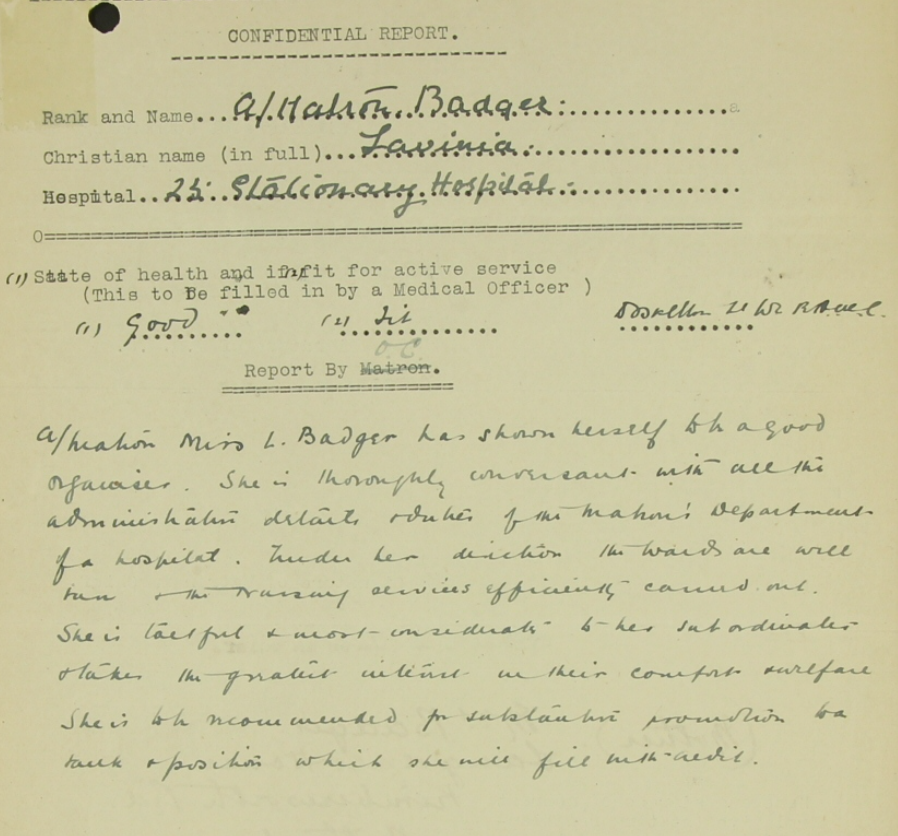 CONFIDENTIAL REPORT.
Rank and Name... A/Matron. Badger:
Christian name (in full)... Lavinia:
Hospital.. 25. Stationary Hospital.
(1) State of health and if fit for active service
(This to Be filled in by a Medical Officer )
(1) Good (2) Fit Lt Col R.A.M.C.
O.C.
Report By Matron.
A/Matron Miss L. Badger has shown herself to be a good
organiser. She is thoroughly conversant with all the
administrative details & duties of the Matron's Department
of a hospital. Under her direction the wards are well
run & the Nursing services efficiently carried out.
She is tactful & most considerate to her subordinates
& takes the greatest interest in their comfort & welfare
She is to be recommended for substantive promotion to a
rank & position which she will fill with credit.